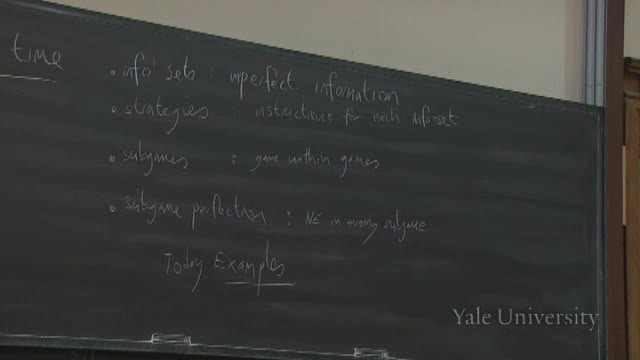 time
• info' sets : imperfect information
• strategies : instructions for each info set
• subgames : game within games
• subgame perfection : NE in every subgame
Today Examples
Yale University